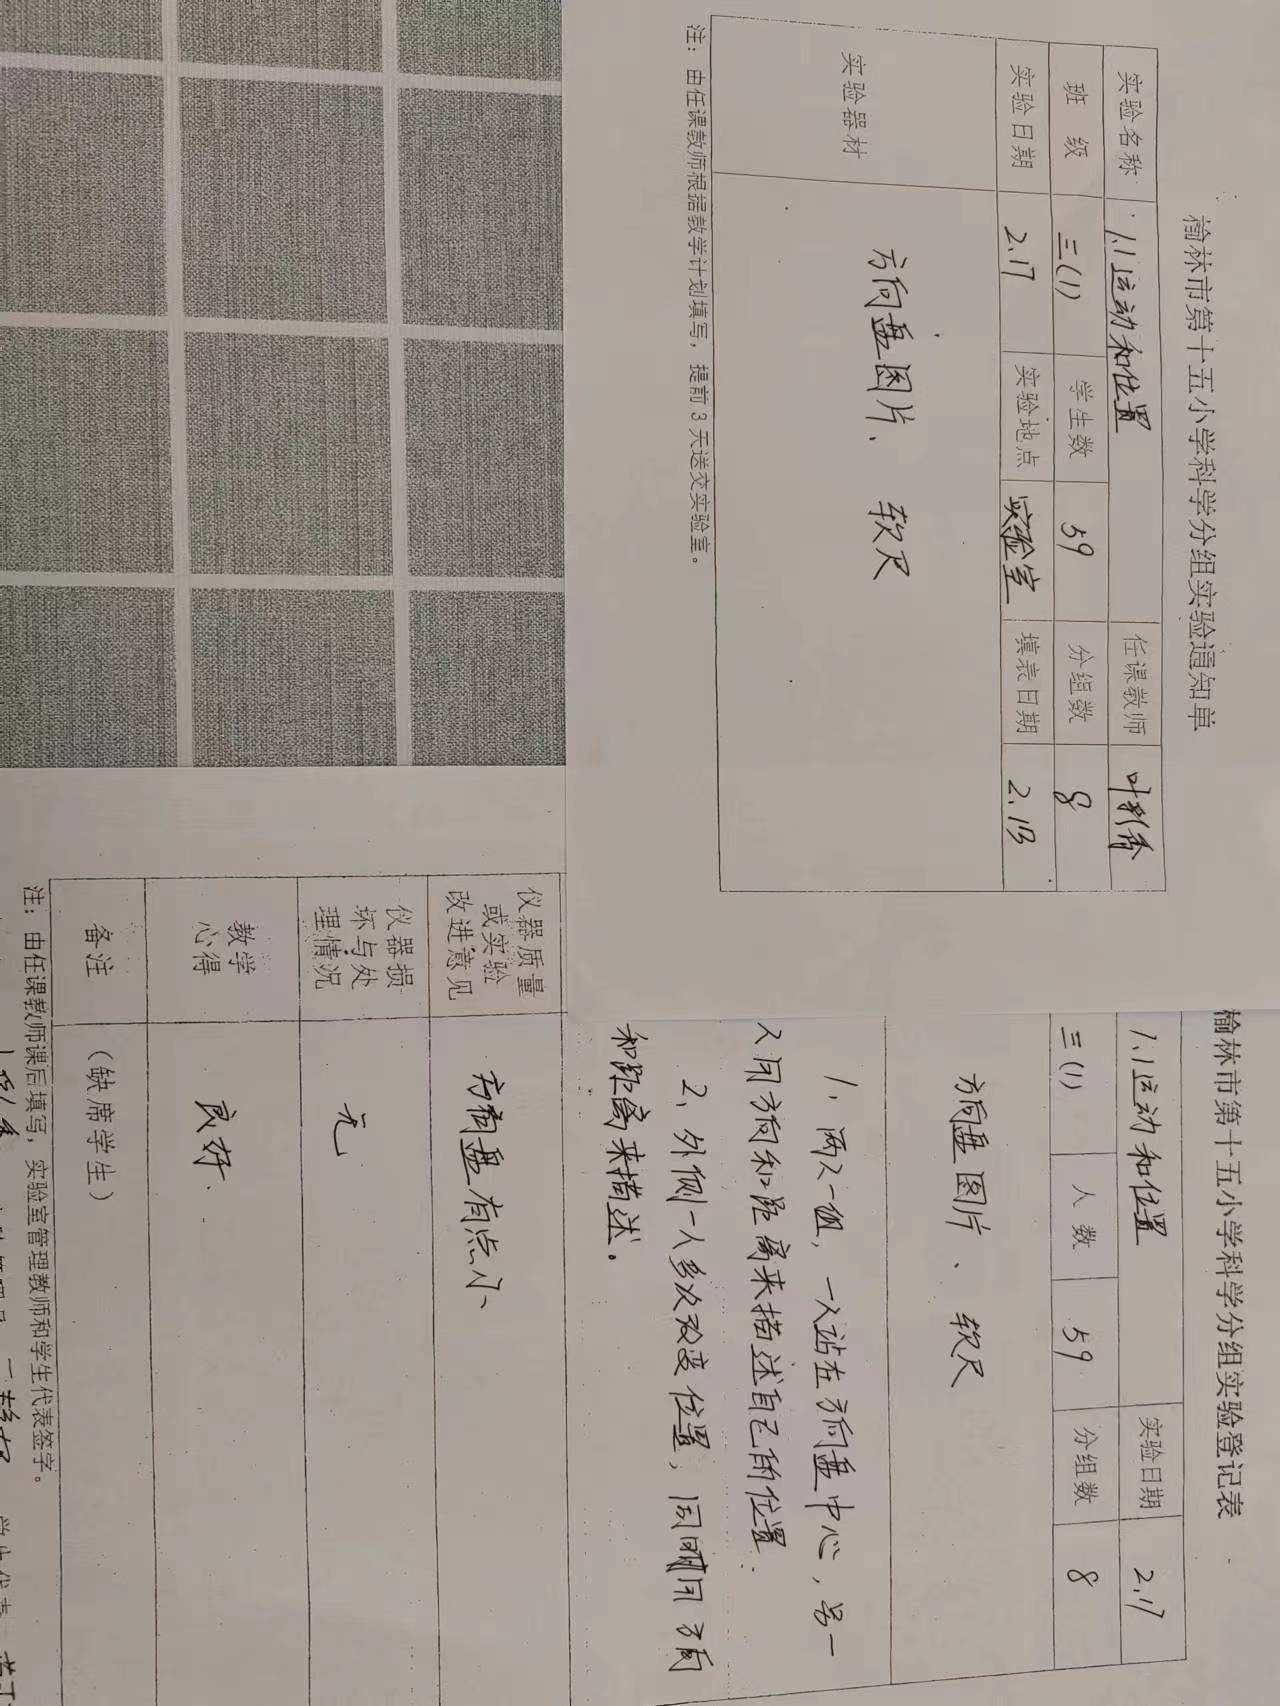 榆林市第十五小学科学分组实验通知单
实验名称 1.1运动和位置 任课教师
班级 三(1) 学生数 59 分组数 8
实验日期 2.17 实验地点 实验室 填表日期 2.13
实验器材 方向盘图片、 软尺
注：由任课教师根据教学计划填写，提前3天送交实验室。
榆林市第十五小学科学分组实验登记表
1.1运动和位置 实验日期 2.17
三(1) 人数 59 分组数 8
方向盘图片、 软尺
1、两人一组，一人站在方向盘中心，另一
人用方向和距离来描述自己的位置.
2、外侧一人多次改变位置，同时用方向
和距离来描述。
仪器质量
或实验
改进意见 方向盘有点小
仪器损
坏与处
理情况 无
教学
心得 良好.
备注 （缺席学生）
注：由任课教师课后填写，实验室管理教师和学生代表签字。